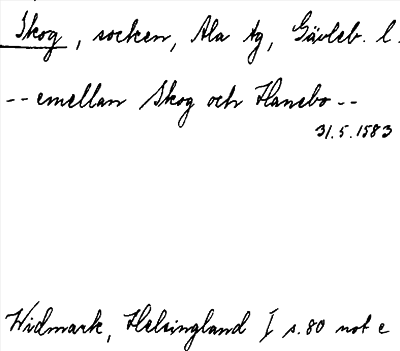 Skog, socken, Ala tg, Gävleb. l.
-- emellan Skog och Hanebo --
31.5.1583
Widmark, Helsingland I s. 80 not e